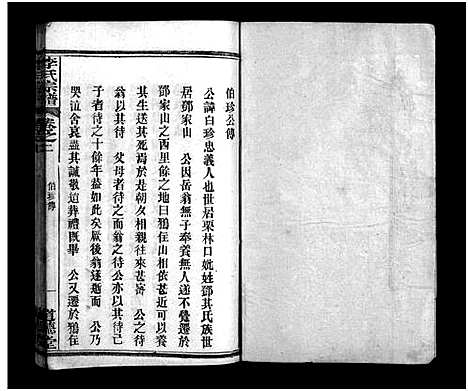 伯珍公傳
公諱白珍忠義人也世居栗林口妣姓鄧其氏族世
居鄧家山 公因岳翁無子奉養無人遂不覺遷於
鄧家山之西里餘之地曰鵶住山相依甚近可以養
其生送其死焉於是朝夕相親往來甚密 公之待
翁以其待 父母者待之而翁之待公亦以其待己
子者待之十餘年蓋如此矣厥後翁遂逝而 公乃
哭泣含哀盡其誠敬追葬禮既畢 公又遷於鵶住
李氏宗譜
卷之二
伯珍傳
一
道德堂